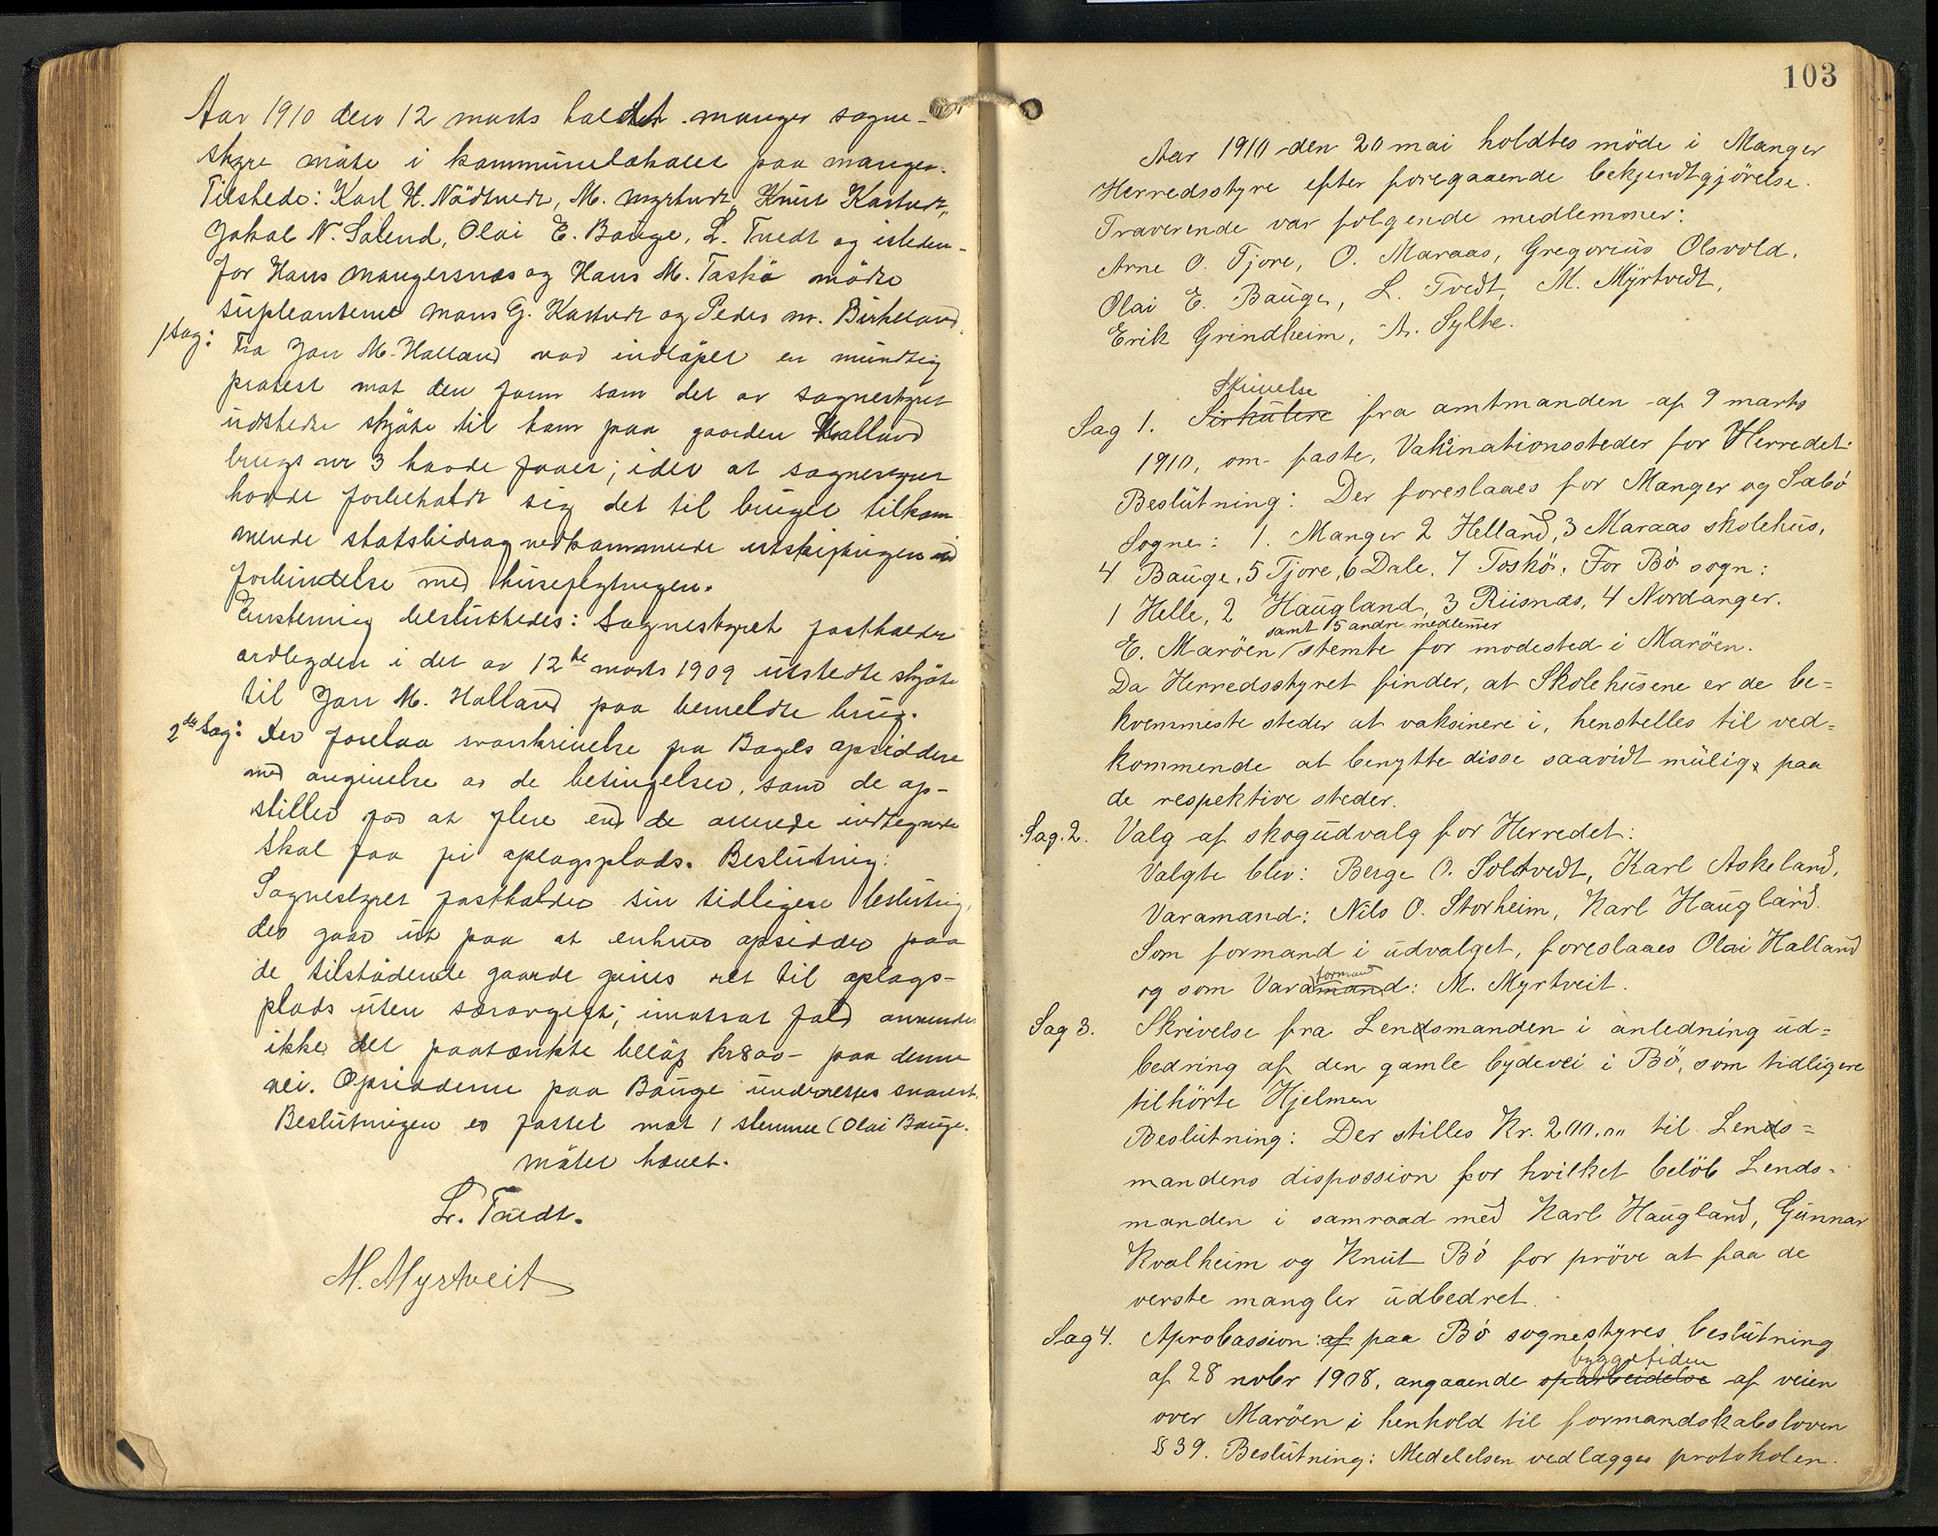 Aar 1910 den 12 marts holdtet manger sogne-
styre møte i kommunelokalet paa manger.
Tilstede: Karl H. Nödtvedt, M. Myrtvedt, Knut Kastvedt,
Jakob N. Solend, Olai E. Bauge, L. Tvedt og isteden-
for Hans Mangersnæs og Hans M. Taskö mödte
supleanterne Mons G. Kastvedt og Peder M. Birkeland.
1 Sag: Fra Jon M. Halland var indløpet en mundtlig
protest mot den form som det av sognestyret
utstedte skjøte til ham paa gaarden Halland
brugs nr 3 havde faaet; idet at sognestyret
havde forbeholdt sig det til bruget tilkom
mende statsbidrag vedkommende utskiftningen i
forbindelse med husflytningen.
Enstemmig besluttedes: Sognestyret fastholder
ordlyden i det av 12te marts 1909 utstedte skjøte
til Jon M. Halland paa bemeldte brug.
2den Sag: Der forelaa svarskrivelse fra Bauges opsiddere
med angivelse av de betingelser, som de op-
stiller for at flere end de allerede indtegnede
skal faa fri oplagsplads. Beslutning:
Sognestyret fastholder sin tidligere beslutning,
der gaar ut paa at enhver opsidder paa
de tilstødende gaarde gives ret til oplags-
plads uten særavgift; imotsat fald anvendes
ikke det paatænkte beløp kr 800- paa denne
vei. Opsidderne paa Bauge underrettes snarest.
Beslutningen er fattet mot 1 stemme (Olai Bauge.
Møtet hævet.
L. Tvedt.
M. Myrtveit
103
Aar 1910 den 20 mai holdtes möde i Manger
Herredsstyre efter foregaaende bekjendtgjörelse.
Fraverende var følgende medlemmer:
Arne O. Fjore, O. Maraas, Gregorius Olsvold,
Olai E. Bauge, L. Tvedt, M. Myrtvedt,
Erik Grindheim, A. Sylte.
Skrivelse
Sag 1. Sirkulere fra amtmanden af 9 marts
1910, om faste, Vaksinationssteder for Herredet.
Beslutning: Der foreslaaes for Manger og Sæbö
Sogne: 1. Manger 2 Helland, 3 Maraas skolehus,
4 Bauge, 5 Fjore, 6 Dale, 7 Toskö, For Bö sogn:
1 Helle, 2 Haugland, 3 Riisnæs, 4 Nordanger.
samt 5 andre medlemer
E. Maröen / stemte for modested i Maröen.
Da Herredsstyret finder, at Skolehusene er de be=
kvemmeste steder at vaksinere i, henstelles til ved=
kommende at benytte disse saavidt mulig, paa
de respektive steder.
Sag. 2. Valg af skogudvalg for Herredet:
Valgte blev: Berge O. Soltvedt, Karl Askeland,
Varamand: Nils O. Storheim, Karl Haugland.
Som formand i udvalget, foreslaaes Olai Halland
formand
og som Varamand: M. Myrtveit.
Sag 3. Skrivelse fra Lendsmanden i anledning ud=
bedring af den gamle bydevei i Bö, som tidligere
tilhörte Hjelmen
Beslutning: Der stilles Kr. 200,00 til Lends=
mandens dispossion for hvilket belöb Lends-
manden i samraad med Karl Haugland, Gunnar
Kvalheim og Knut Bö for pröve at faa de
verste mangler udbedret.
Sag 4. Aprobassion: af paa Bö sognestyres beslutning
byggetiden
af 28 nobr 1908, angaaende oparbeidelse af veien
over Maröen i henhold til formandskabsloven
§ 39. Beslutning: Medelelsen vedlægges protokolen.